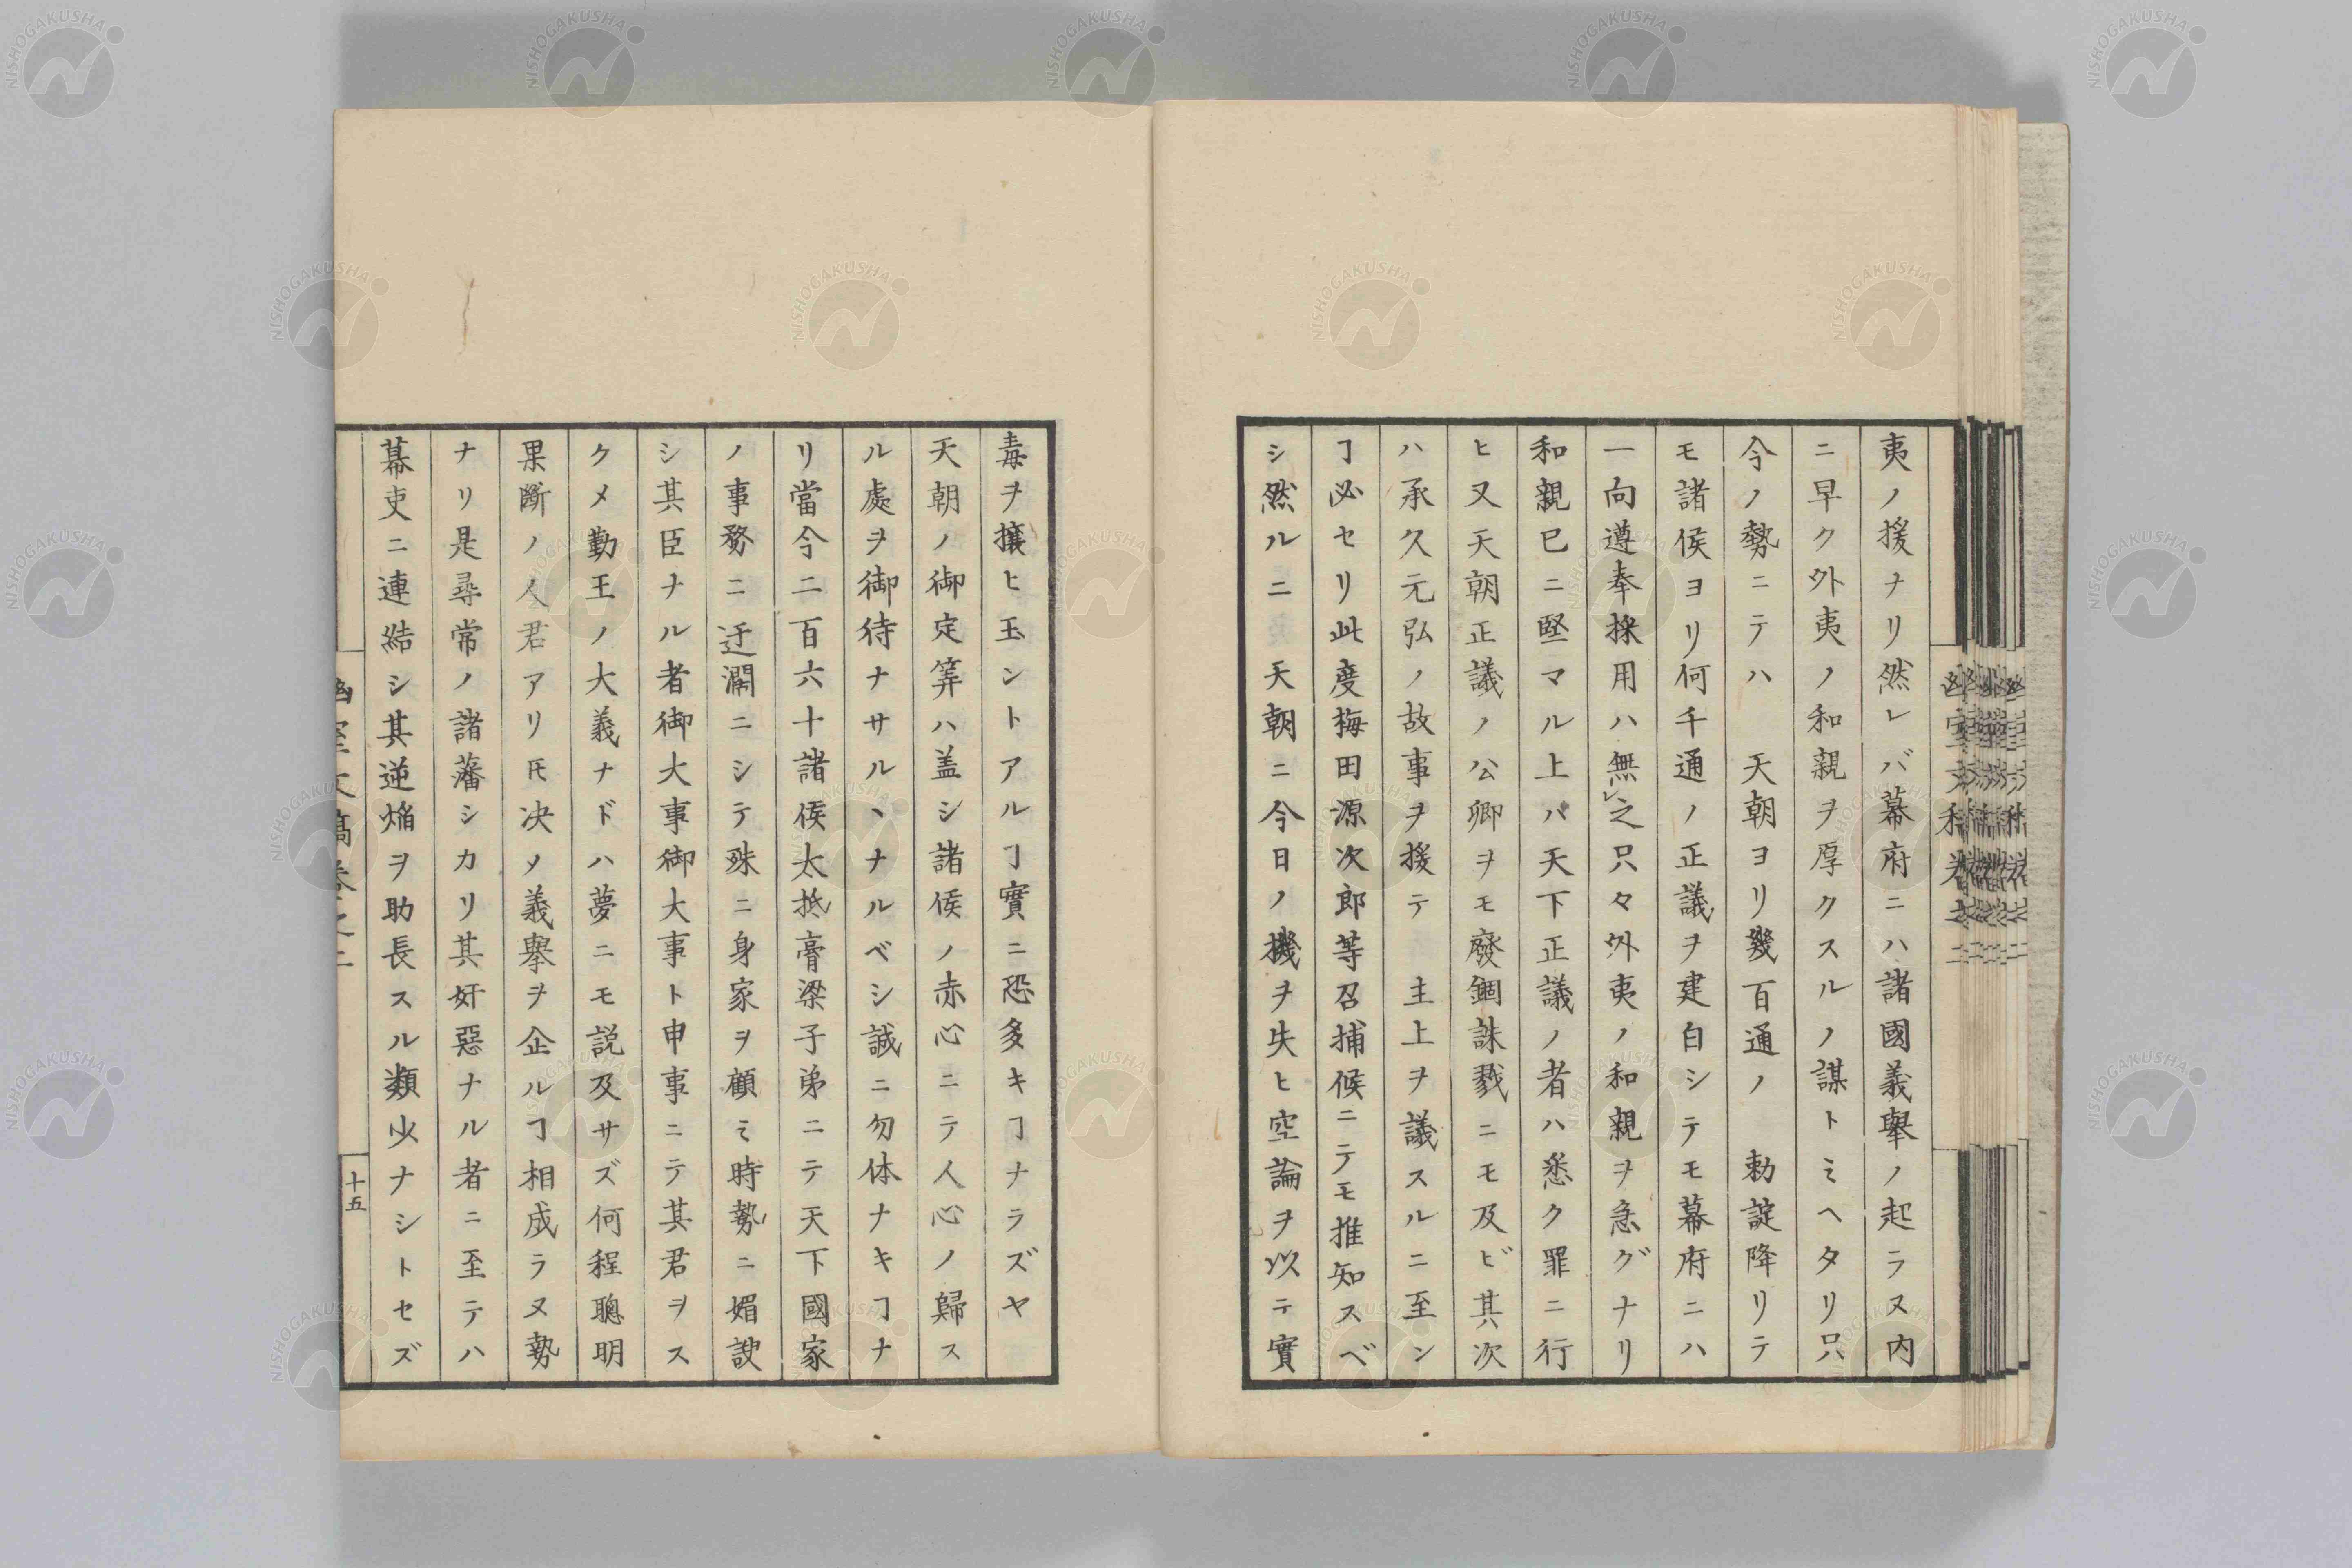 夷ノ援ナリ然レバ幕府ニハ諸國義擧ノ起ラヌ内
ニ早ク外夷ノ和親ヲ厚クスルノ謀トミヘタリ只
今ノ勢ニテハ　天朝ヨリ幾百通ノ　勅諚降リテ
モ諸侯ヨリ何千通ノ正議ヲ建白シテモ幕府ニハ
一向遵奉採用ハ無㆑之只々外夷ノ和親ヲ急グナリ
和親已ニ堅マル上バ天下正議ノ者ハ悉ク罪ニ行
ヒ又天朝正議ノ公卿ヲモ廢錮誅戮ニモ及ビ其次
ハ承久元弘ノ故事ヲ援テ　主上ヲ議スルニ至ン
ヿ必セリ此度梅田源次郎等召捕候ニテモ推知スベ
シ然ルニ　天朝ニ今日ノ機ヲ失ヒ空論ヲ以テ實
毒ヲ攘ヒ玉ントアルヿ實ニ恐多キヿナラズヤ
天朝ノ御定筭ハ盖シ諸侯ノ赤心ニテ人心ノ歸ス
ル處ヲ御待ナサルヽナルベシ誠ニ勿体ナキヿナ
リ當今二百六十諸侯太抵膏粱子弟ニテ天下國家
ノ事務ニ迂濶ニシテ殊ニ身家ヲ顧ミ時勢ニ媚諛
シ其臣ナル者御大事御大事ト申事ニテ其君ヲス
クメ勤王ノ大義ナドハ夢ニモ説及サズ何程聰明
果斷ノ人君アリ𪜈决メ義擧ヲ企ルヿ相成ラヌ勢
ナリ是尋常ノ諸藩シカリ其奸惡ナル者ニ至テハ
幕吏ニ連結シ其逆焔ヲ助長スル類少ナシトセズ
幽室文稿卷之二
十五
NISHOGAKUSHA